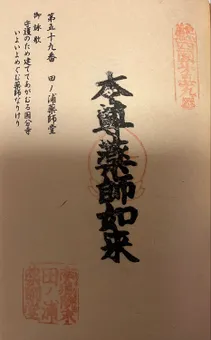 第五十九番 田ノ浦薬師堂
御詠歌
守護のため建ててあがむる国分寺
いよいよめぐむ薬師なりけり
本尊薬師如来